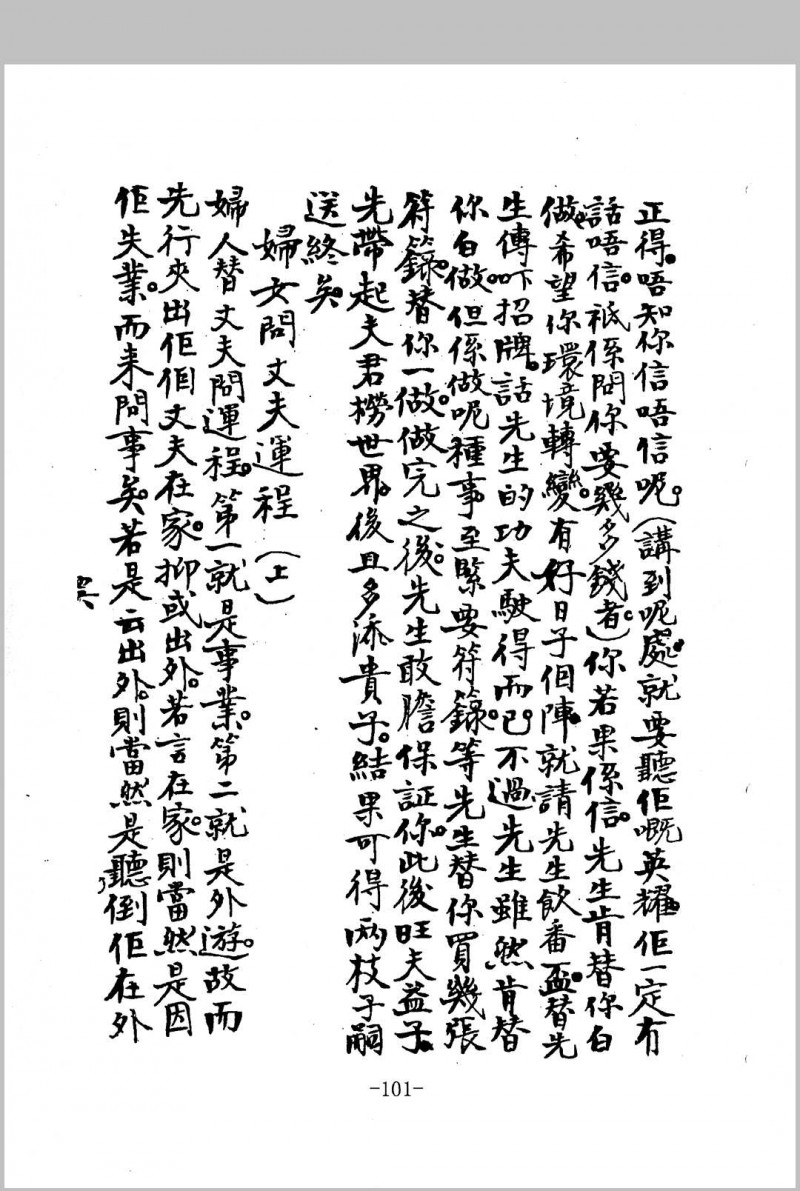 正得。唔知你信唔信呢。（講到呢處。就要聽佢嘅英耀。佢一定有
話唔信。祇係問你要幾多錢者。）你若果係信。先生肯替你白
做。希望你環境轉變。有好日子個陣。就請先生飲番盃。替先
生傳吓招牌。話先生的功夫駛得而已。不過先生雖然肯替
你白做。但係做呢種事至緊要符籙。等先生替你買幾張
符籙。替你一做。做完之後。先生敢膽保証你。此後旺夫益子。
先帶起夫君撈世界。後且多添貴子。結果可得兩枝子嗣
送終矣。
婦女問丈夫運程（上）
婦人替丈夫問運程。第一就是事業。第二就是外遊。故而
先行夾出佢個丈夫在家。抑或出外。若言在家。則當然是因
佢失業。而來問事矣。若是云出外。則當然是聽倒佢在外
-101-